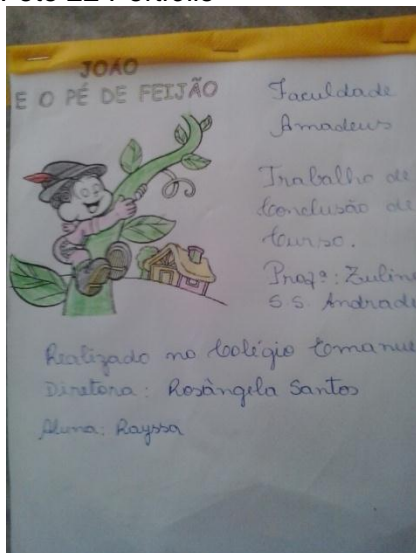 JOÃO
E O PÉ DE FEIJÃO
Faculdade
Amadeus
Trabalho de
Conclusão de
Curso.
Profª: Zuline
S.S. Andrade
Realizado no Colégio Emanue
Diretora: Rosângela Santos
Aluna: Rayssa